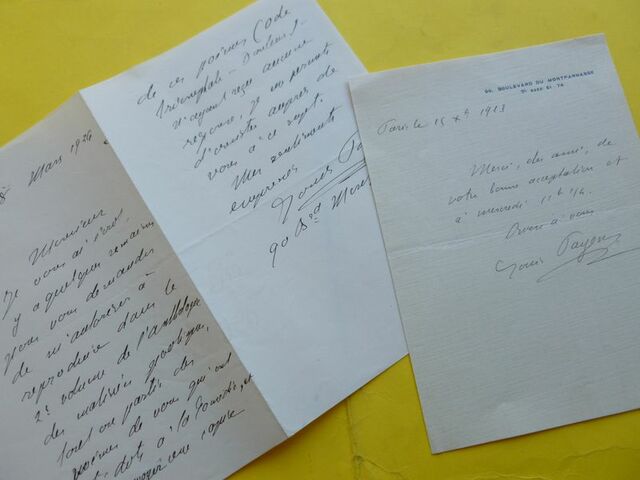 8 Mars 1924
Monsieur
Je vous ai écrit
il y a quelques semaines
pour vous demander
de m'autoriser à
reproduire dans le
2e volume de l'anthologie
des matinées poétiques,
tout ou partie des
poèmes de vous qui ont
été dits à la
de ces poèmes (Ode
Incomplète - Douleur)
N'ayant reçu aucune
réponse, je me permets
d'insister auprès de
vous à ce sujet.
Mes sentiments
empressés
Louis
90 Bd
90, BOULEVARD DU MONTPARNASSE
Paris le 15 Xbre 1913
Merci, cher ami, de
votre bonne acceptation et
à mercredi
à vous
Louis Payen